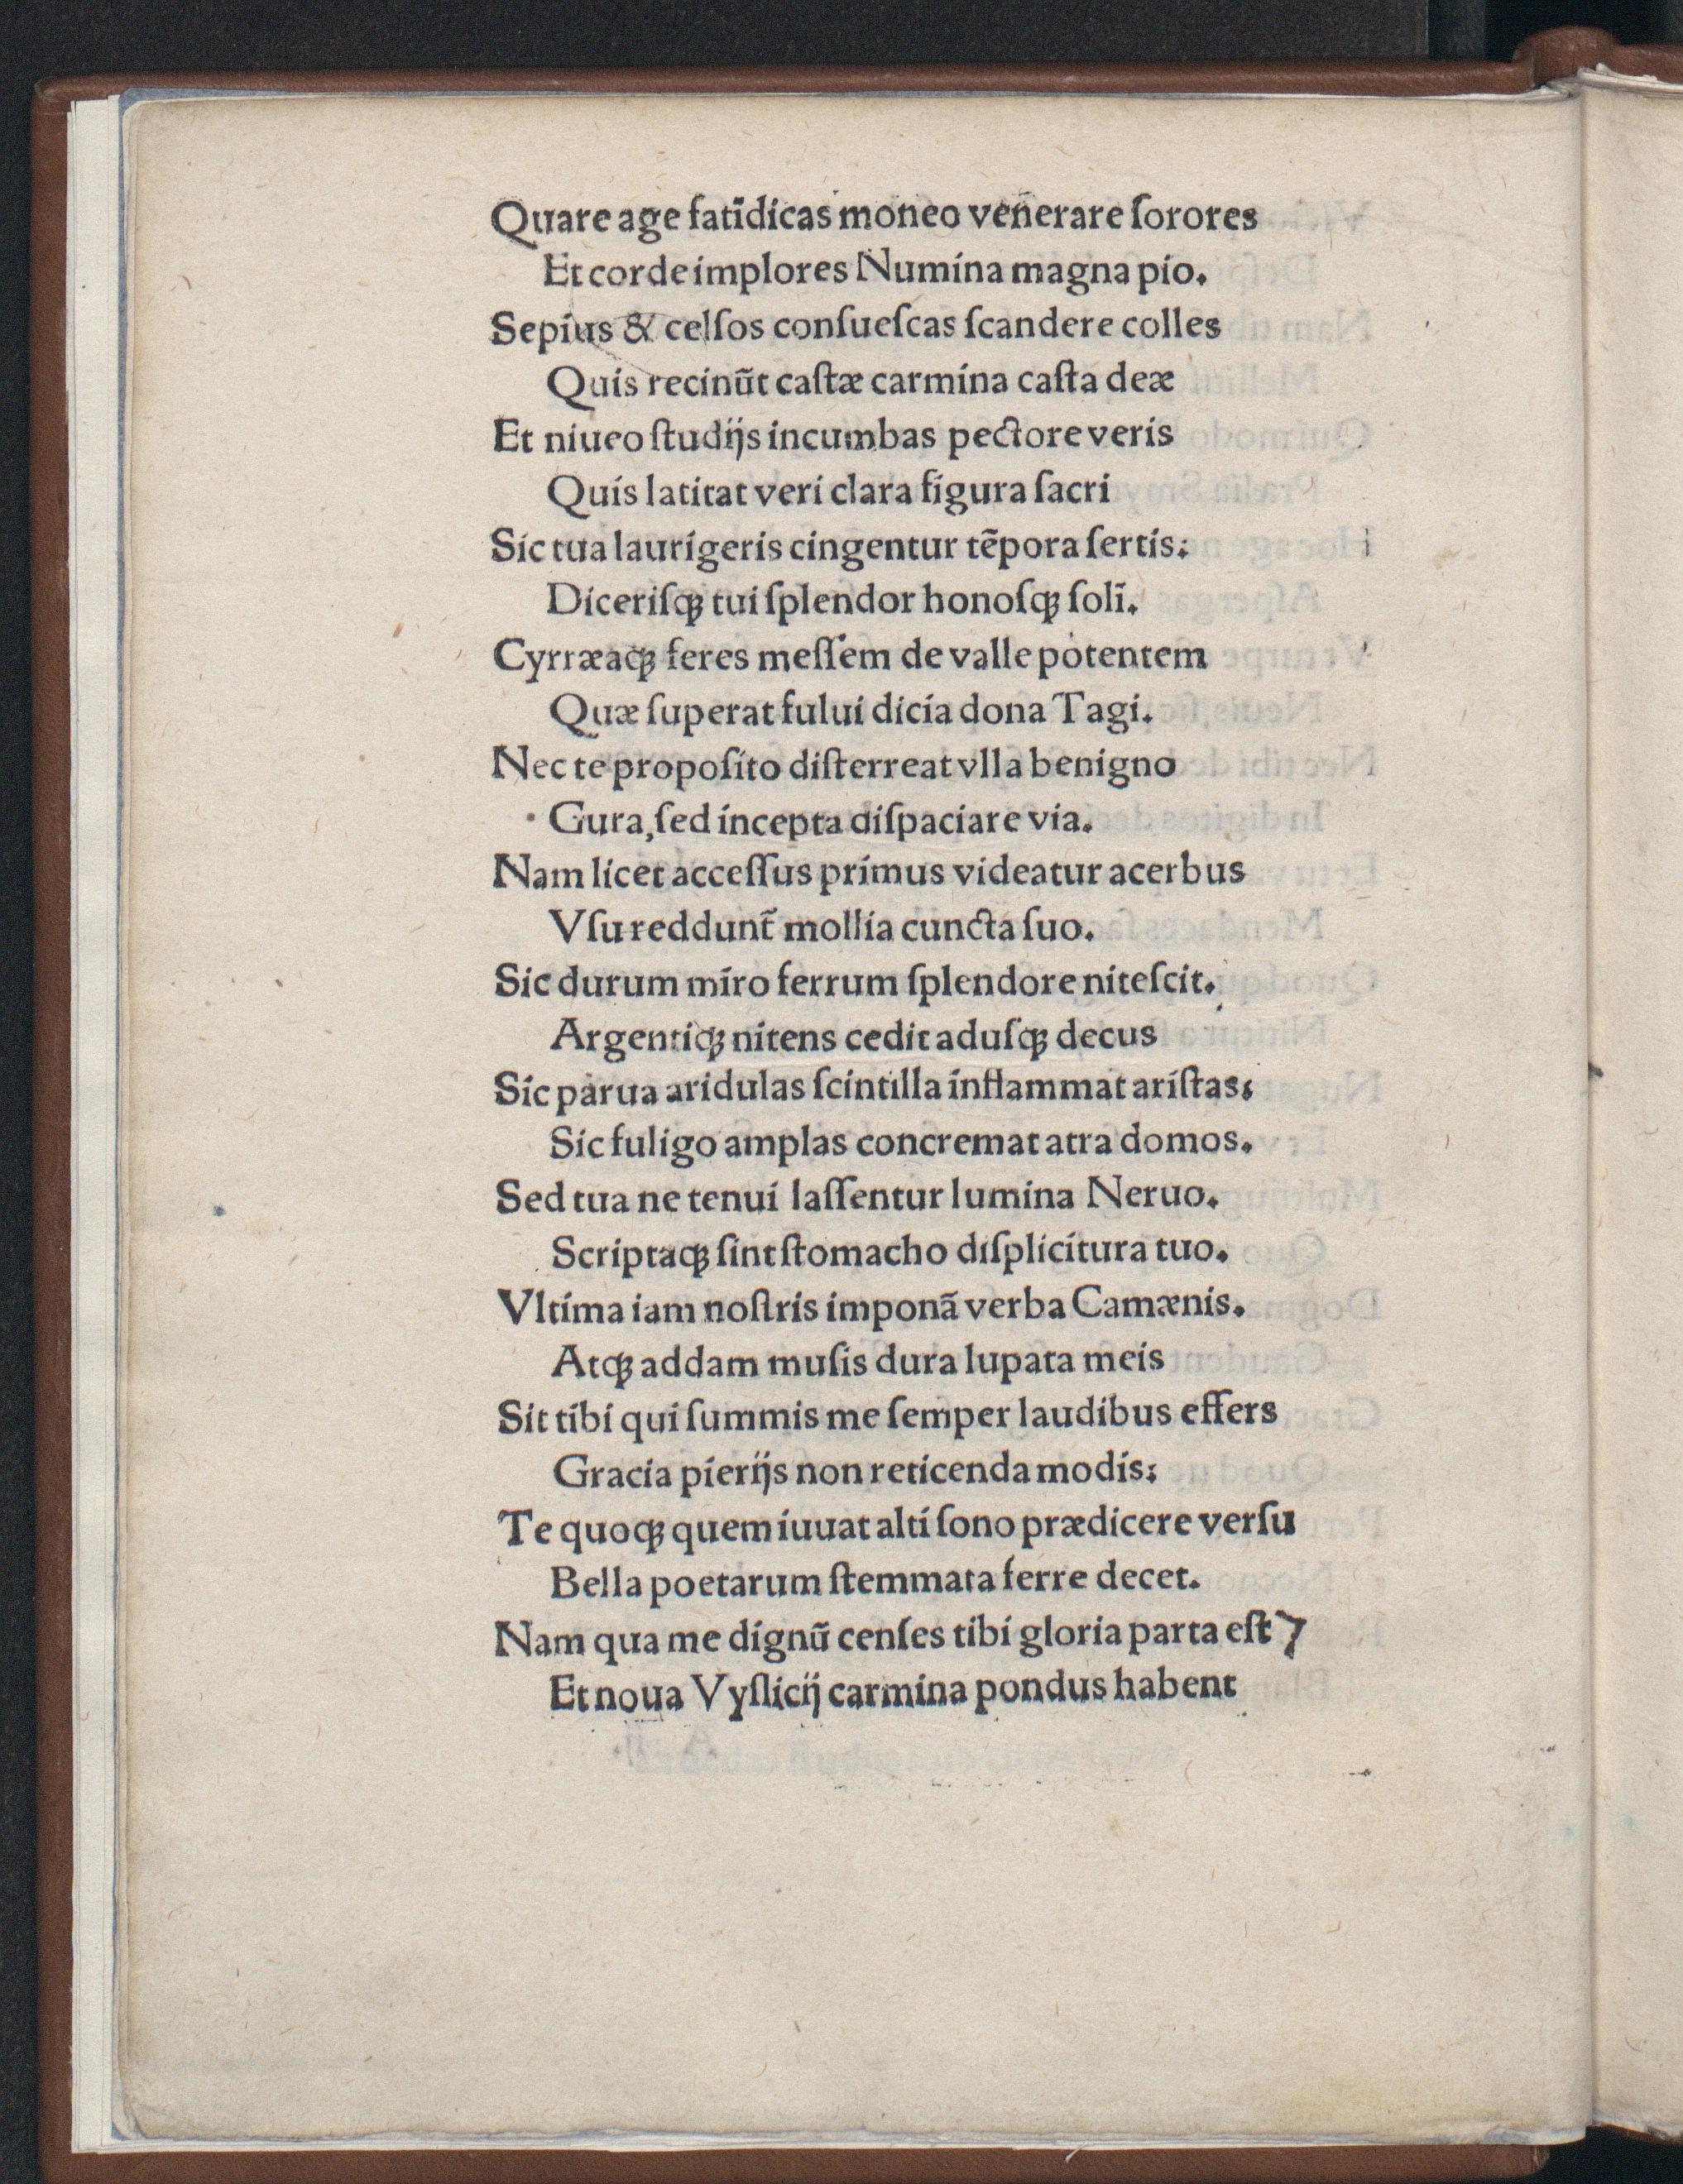 Quare age fatidicas moneo venerare ſorores
Et corde implores Numina magna pio.
Sepius & celſos conſueſcas ſcandere colles
Quis recinũt caſtæ carmina caſta deæ
Et niueo ſtudijs incumbas pectore veris
Quis latitat veri clara figura ſacri
Sic tua laurigeris cingentur tẽpora ſertis:
Diceriſqꝫ tui ſplendor honoſqꝫ ſoli.
Cyrræaqꝫ feres meſſem de valle potentem
Quæ ſuperat fului dicia dona Tagi.
Nec te propoſito diſterreat vlla benigno
Gura, ſed incepta diſpaciare via.
Nam licet acceſſus primus videatur acerbus
Vſu reddunt̃ mollia cuncta ſuo.
Sic durum miro ferrum ſplendore niteſcit.
Argentiqꝫ nitens cedit aduſqꝫ decus
Sic parua aridulas ſcintilla inflammat ariſtas:
Sic fuligo amplas concremat atra domos.
Sed tua ne tenui laſſentur lumina Neruo.
Scriptaqꝫ ſint ſtomacho diſplicitura tuo.
Vltima iam noſtris imponã verba Camænis.
Atqꝫ addam muſis dura lupata meis
Sit tibi qui ſummis me ſemper laudibus effers
Gracia pierijs non reticenda modis:
Te quoqꝫ quem iuuat alti ſono prædicere verſu
Bella poetarum ſtemmata ferre decet.
Nam qua me dignũ cenſes tibi gloria parta eſt ⁊
Et noua Vyſlicij carmina pondus habent